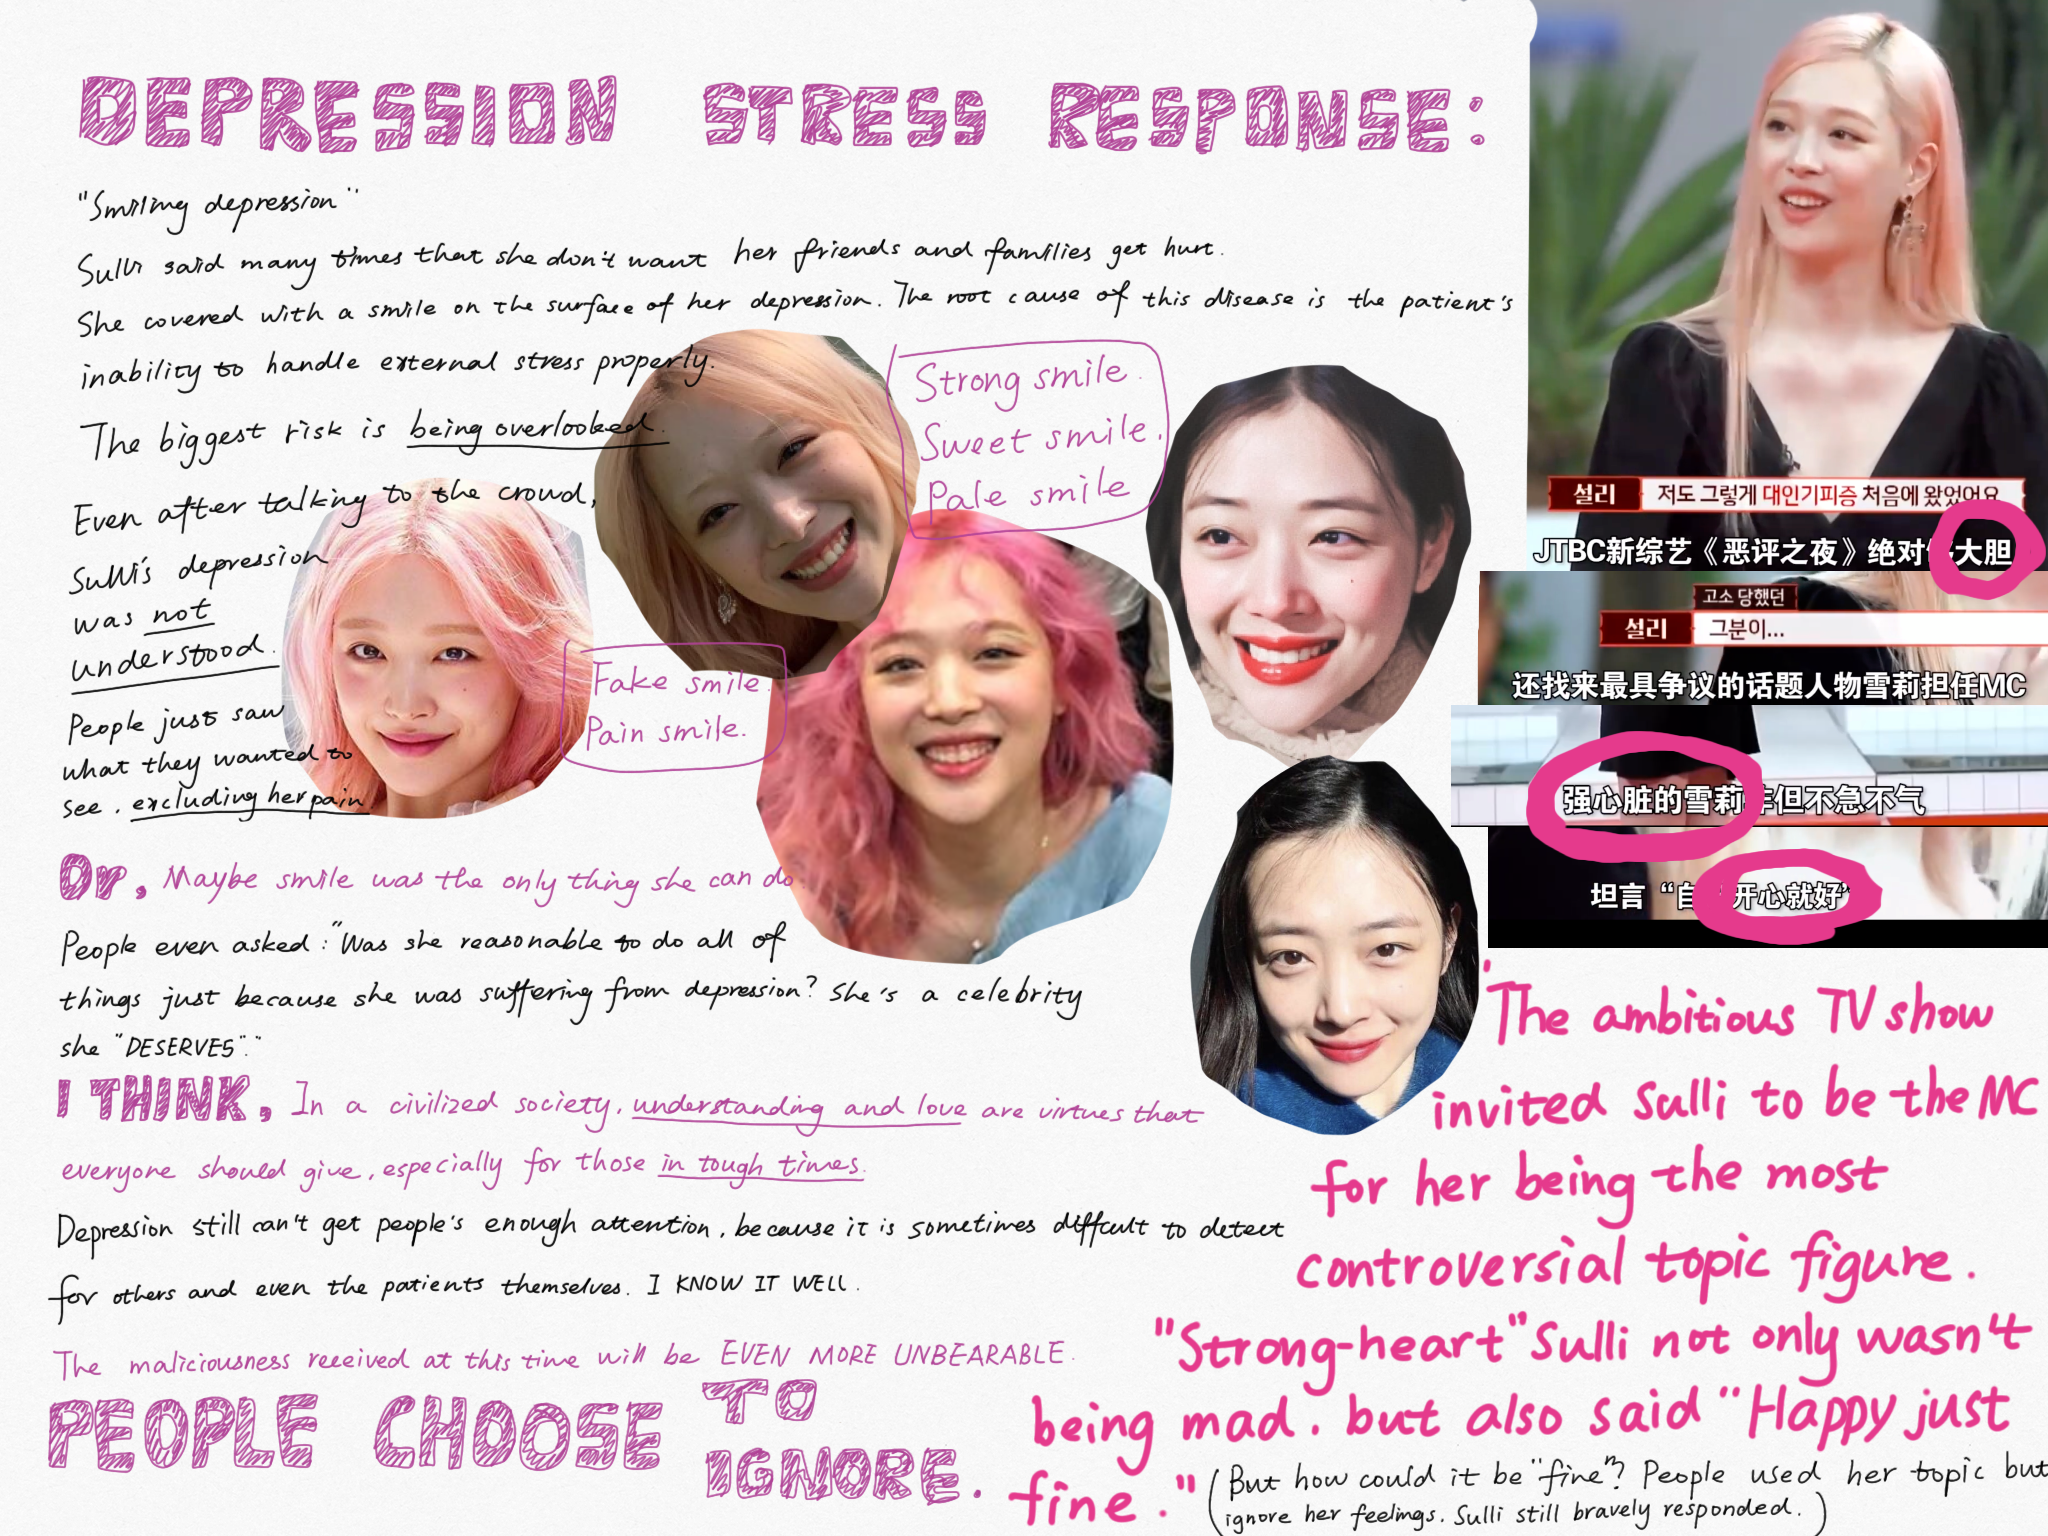 DEPRESSION STRESS RESPONSE:
"Smiling depression"
Sulli said many times that she don't want her friends and families get hurt.
She covered with a smile on the surface of her depression. The root cause of this disease is the patient's
inability to handle external stress properly.
The biggest risk is being overlooked.
Even after talking to the crowd,
Sulli's depression
was not
understood.
People just saw
what they wanted to
see, excluding her pain
Strong smile.
Sweet smile.
Pale smile
Fake smile.
Pain smile.
Or, Maybe smile was the only thing she can do.
People even asked: "Was she reasonable to do all of
things just because she was suffering from depression? She's a celebrity
she "DESERVES"."
I THINK, In a civilized society, understanding and love are virtues that
everyone should give, especially for those in tough times.
Depression still can't get people's enough attention, because it is sometimes difficult to detect
for others and even the patients themselves. I KNOW IT WELL.
The maliciousness received at this time will be EVEN MORE UNBEARABLE.
PEOPLE CHOOSE TO
IGNORE.
설리 저도 그렇게 대인기피증 처음에 왔었어요
JTBC新综艺《恶评之夜》绝对 大胆
고소 당했던
설리 그분이...
还找来最具争议的话题人物雪莉担任MC
强心脏的雪莉非但不急不气
坦言“自 开心就好”
The ambitious TV show
invited Sulli to be the MC
for her being the most
controversial topic figure.
"Strong-heart" Sulli not only wasn't
being mad, but also said "Happy just
fine."
(But how could it be "fine"? People used her topic but
ignore her feelings. Sulli still bravely responded.)